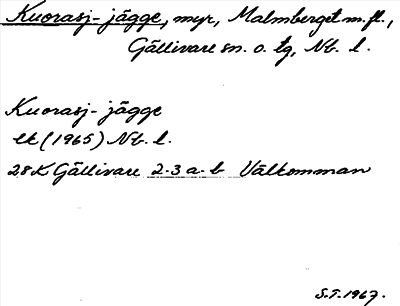 Kuorasj-jägge, myr, Malmberget m.fl.,
Gällivare sn. o. tg, Nb. l.
Kuorasj-jägge
ek (1965) Nb. l.
28K Gällivare 2-3 a-b Välkomman
S.T. 1967.